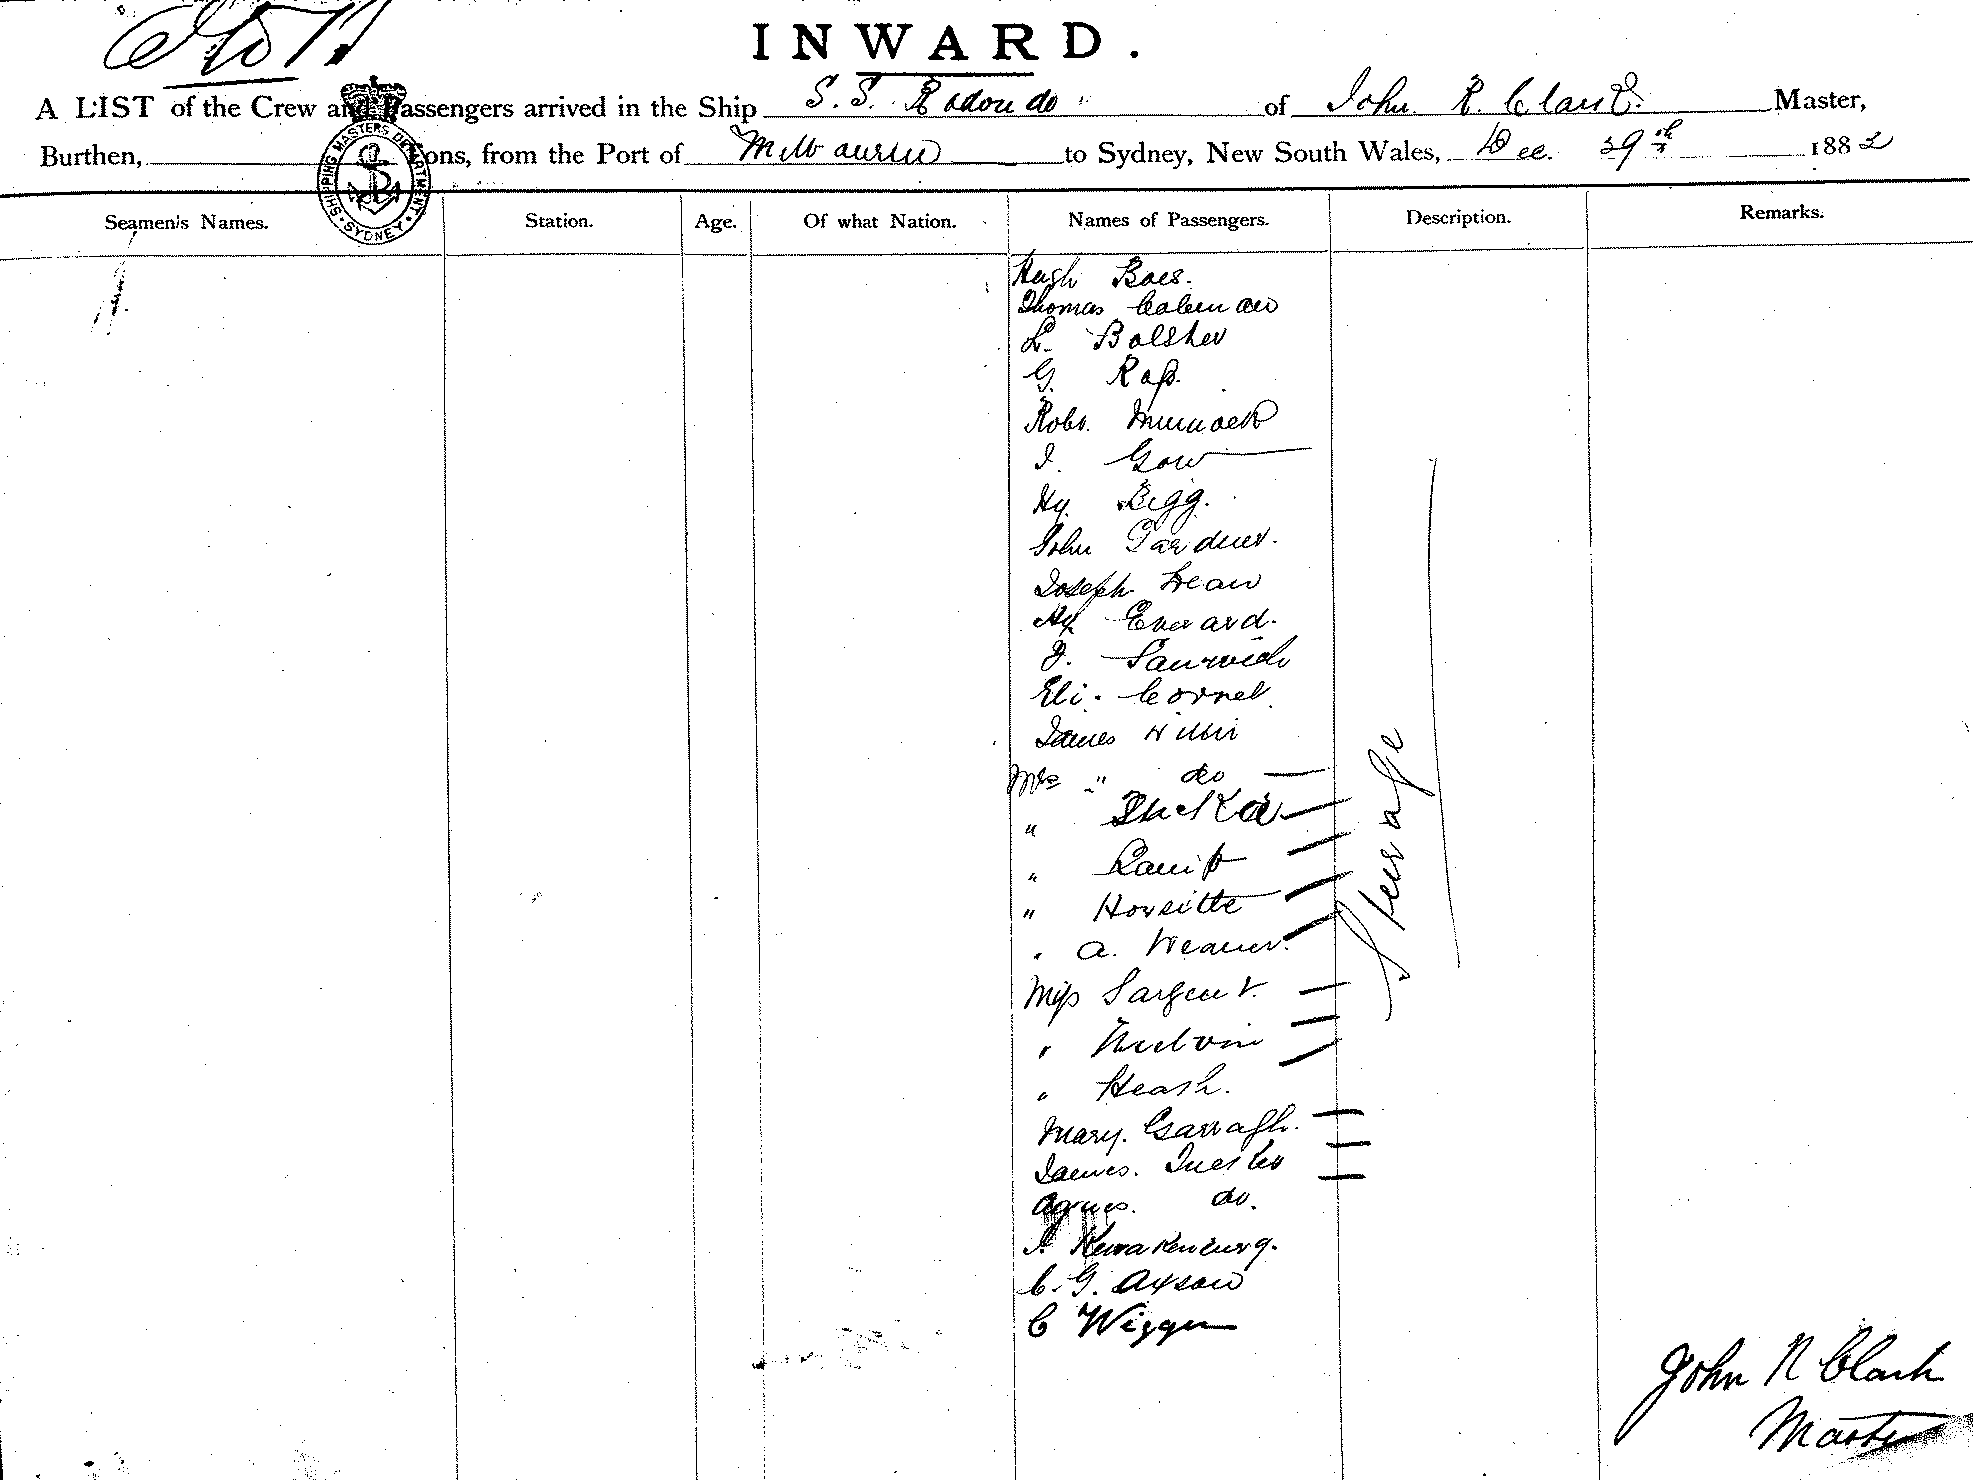 INWARD.
A LIST of the Crew and Passengers arrived in the Ship S. S. Rodondo of John R. Clark Master,
Burthen, Tons, from the Port of Melbourne to Sydney, New South Wales, Dec. 29th 1882
SHIPPING MASTERS DEPARTMENT SYDNEY
Seamen's Names. Station. Age. Of what Nation. Names of Passengers. Description. Remarks.
Hugh Boes.
Thomas Coleman
L. Bolster
G. Ross.
Robt. Murdoch
J. Gow
Hy. Bigg.
John Gardner.
Joseph Dean
Hy Everard.
J.
Eli. Cornel
James
Mrs " do
"
"
"
" A. Weaver.
Miss Sargent.
"
" Heash.
Mary. Garragh.
James.
Agnes. do.
C. G. Axson
C Wiggen
Steerage
John R Clark
Master